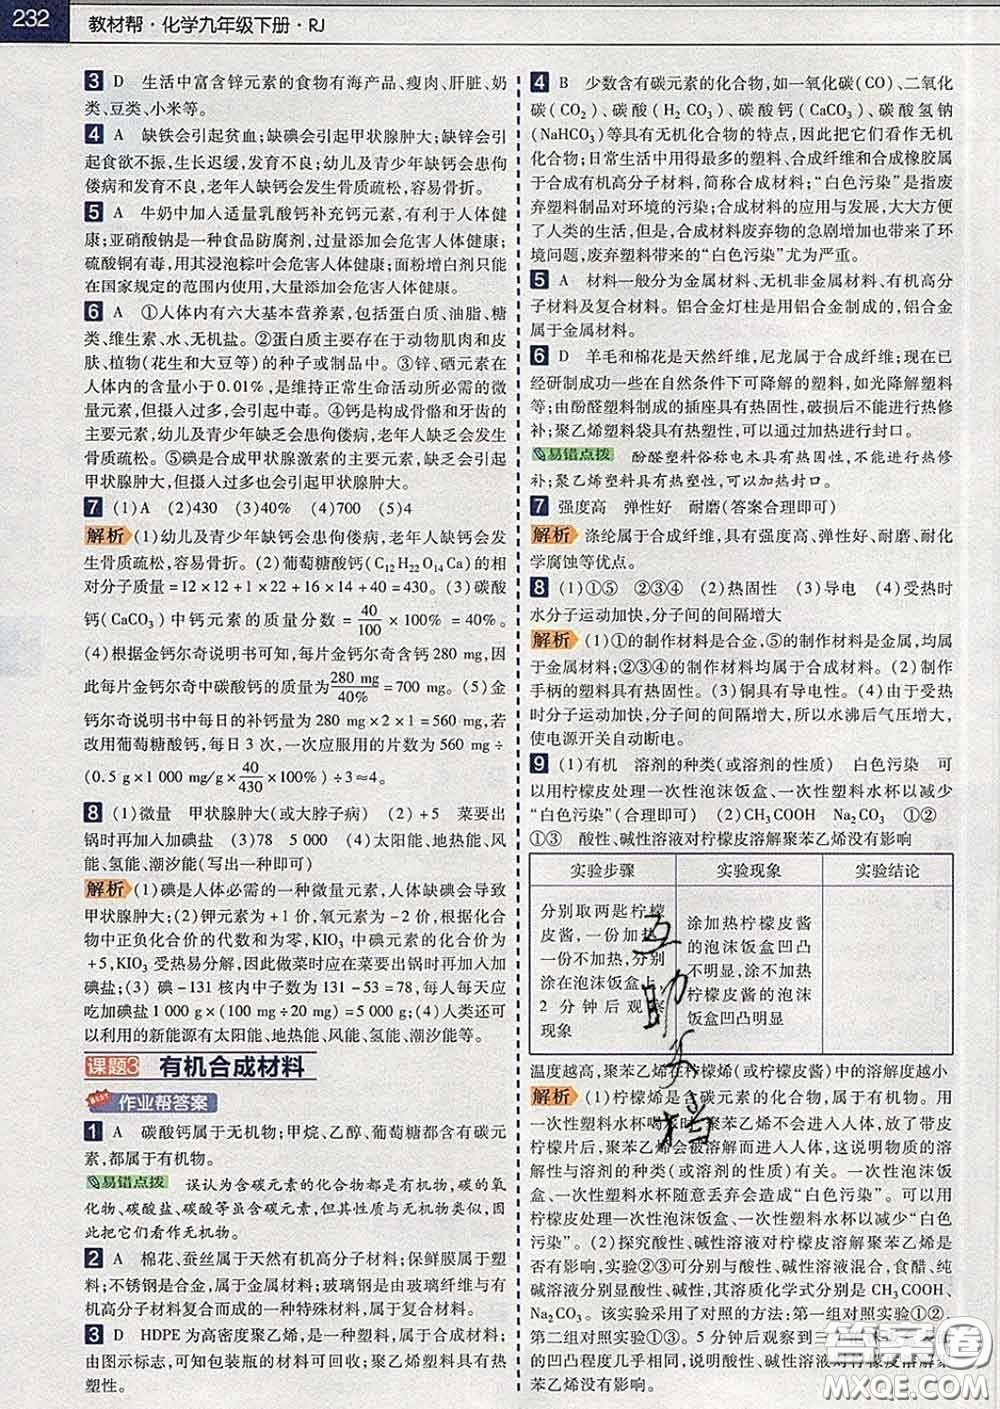 232
教材帮·化学九年级下册·RJ
3 D 生活中富含锌元素的食物有海产品、瘦肉、肝脏、奶
类、豆类、小米等。
4 A 缺铁会引起贫血;缺碘会引起甲状腺肿大;缺锌会引
起食欲不振,生长迟缓,发育不良;幼儿及青少年缺钙会患佝
偻病和发育不良,老年人缺钙会发生骨质疏松,容易骨折。
5 A 牛奶中加入适量乳酸钙补充钙元素,有利于人体健
康;亚硝酸钠是一种食品防腐剂,过量添加会危害人体健康;
硫酸铜有毒,用其浸泡粽叶会危害人体健康;面粉增白剂只能
在国家规定的范围内使用,大量添加会危害人体健康。
6 A ①人体内有六大基本营养素,包括蛋白质、油脂、糖
类、维生素、水、无机盐。②蛋白质主要存在于动物肌肉和皮
肤,植物(花生和大豆等)的种子或制品中。③锌、硒元素在
人体内的含量小于0.01%,是维持正常生命活动所必需的微
量元素,但摄入过多,会引起中毒。④钙是构成骨骼和牙齿的
主要元素,幼儿及青少年缺乏会患佝偻病,老年人缺乏会发生
骨质疏松。⑤碘是合成甲状腺激素的主要元素,缺乏会引起
甲状腺肿大,但摄入过多也会引起甲状腺肿大。
7 (1)A (2)430 (3)40% (4)700 (5)4
解析 (1)幼儿及青少年缺钙会患佝偻病,老年人缺钙会发
生骨质疏松,容易骨折。(2)葡萄糖酸钙(C₁₂H₂₂O₁₄Ca)的相
对分子质量=12×12+1×22+16×14+40=430。(3)碳酸
钙(CaCO₃)中钙元素的质量分数=40/100×100%=40%。
(4)根据金钙尔奇说明书可知,每片金钙尔奇含钙280 mg,因
此每片金钙尔奇中碳酸钙的质量为280 mg/40%=700 mg。(5)金
钙尔奇说明书中每日的补钙量为280 mg×2×1=560 mg,若
改用葡萄糖酸钙,每日3次,一次应服用的片数为560 mg÷
(0.5 g×1 000 mg/g×40/430×100%)÷3≈4。
8 (1)微量 甲状腺肿大(或大脖子病) (2)+5 菜要出
锅时再加入加碘盐 (3)78 5 000 (4)太阳能、地热能、风
能、氢能、潮汐能(写出一种即可)
解析 (1)碘是人体必需的一种微量元素,人体缺碘会导致
甲状腺肿大;(2)钾元素为+1价,氧元素为-2价,根据化合
物中正负化合价的代数和为零,KIO₃中碘元素的化合价为
+5,KIO₃受热易分解,因此做菜时应在菜要出锅时再加入加
碘盐;(3)碘-131核内中子数为131-53=78,每人每天需吃
加碘盐1 000 g×(100 mg÷20 mg)=5 000 g;(4)人类还可
以利用的新能源有太阳能、地热能、风能、氢能、潮汐能等。
课题3 有机合成材料
作业帮答案
1 A 碳酸钙属于无机物;甲烷、乙醇、葡萄糖都含有碳元
素,都属于有机物。
易错点拨 误认为含碳元素的化合物都是有机物,碳的氧
化物、碳酸盐、碳酸等虽含碳元素,但其性质与无机物类似,因
此把它们看作无机物。
2 A 棉花、蚕丝属于天然有机高分子材料;保鲜膜属于塑
料;不锈钢是合金,属于金属材料;玻璃钢是由玻璃纤维与有
机高分子材料复合而成的一种特殊材料,属于复合材料。
3 D HDPE为高密度聚乙烯,是一种塑料,属于合成材料;
由图示标志,可知包装瓶的材料可回收;聚乙烯塑料具有热
塑性。
4 B 少数含有碳元素的化合物,如一氧化碳(CO)、二氧化
碳(CO₂)、碳酸(H₂CO₃)、碳酸钙(CaCO₃)、碳酸氢钠
(NaHCO₃)等具有无机化合物的特点,因此把它们看作无机
化合物;日常生活中用得最多的塑料、合成纤维和合成橡胶属
于合成有机高分子材料,简称合成材料;“白色污染”是指废
弃塑料制品对环境的污染;合成材料的应用与发展,大大方便
了人类的生活,但是,合成材料废弃物的急剧增加也带来了环
境问题,废弃塑料带来的“白色污染”尤为严重。
5 A 材料一般分为金属材料、无机非金属材料、有机高分
子材料及复合材料。铝合金灯柱是用铝合金制成的,铝合金
属于金属材料。
6 D 羊毛和棉花是天然纤维,尼龙属于合成纤维;现在已
经研制成功一些在自然条件下可降解的塑料,如光降解塑料
等;由酚醛塑料制成的插座具有热固性,破损后不能进行热修
补;聚乙烯塑料袋具有热塑性,可以通过加热进行封口。
易错点拨 酚醛塑料俗称电木具有热固性,不能进行热修
补;聚乙烯塑料具有热塑性,可以加热封口。
7 强度高 弹性好 耐磨(答案合理即可)
解析 涤纶属于合成纤维,具有强度高、弹性好、耐磨、耐化
学腐蚀等优点。
8 (1)①⑤ ②③④ (2)热固性 (3)导电 (4)受热时
水分子运动加快,分子间的间隔增大
解析 (1)①的制作材料是合金,⑤的制作材料是金属,均属
于金属材料;②③④的制作材料均属于合成材料。(2)制作
手柄的塑料具有热固性。(3)铜具有导电性。(4)由于受热
时分子运动加快,分子间的间隔增大,所以水沸后气压增大,
使电源开关自动断电。
9 (1)有机 溶剂的种类(或溶剂的性质) 白色污染 可
以用柠檬皮处理一次性泡沫饭盒、一次性塑料水杯以减少
“白色污染”(合理即可) (2)CH₃COOH Na₂CO₃ ①②
①③ 酸性、碱性溶液对柠檬皮溶解聚苯乙烯没有影响
实验步骤 实验现象 实验结论
分别取两匙柠檬
皮酱,一份加热,
一份不加热,分别
涂在泡沫饭盒上,
2分钟后观察
现象
涂加热柠檬皮酱
的泡沫饭盒凹凸
不明显,涂不加热
柠檬皮酱的泡沫
饭盒凹凸明显
温度越高,聚苯乙烯在柠檬烯(或柠檬皮酱)中的溶解度越小
解析 (1)柠檬烯是含碳元素的化合物,属于有机物。用
一次性塑料水杯喝茶时,聚苯乙烯不会进入人体,放了带皮
柠檬片后,聚苯乙烯会被溶解而进入人体,这说明物质的溶
解性与溶剂的种类(或溶剂的性质)有关。一次性泡沫饭
盒、一次性塑料水杯随意丢弃会造成“白色污染”。可以用
柠檬皮处理一次性泡沫饭盒、一次性塑料水杯以减少“白色
污染”。(2)探究酸性、碱性溶液对柠檬皮溶解聚苯乙烯是
否有影响,实验②③可分别与酸性、碱性溶液混合,食醋、纯
碱溶液分别显酸性、碱性,其溶质化学式分别是CH₃COOH、
Na₂CO₃。该实验采用了对照的方法:第一组对照实验①②。
第二组对照实验①③。5分钟后观察到三
的凹凸程度几乎相同,说明酸性、碱性溶液对柠檬皮溶解聚
苯乙烯没有影响。
互助文档
答案圈
MXQE.COM